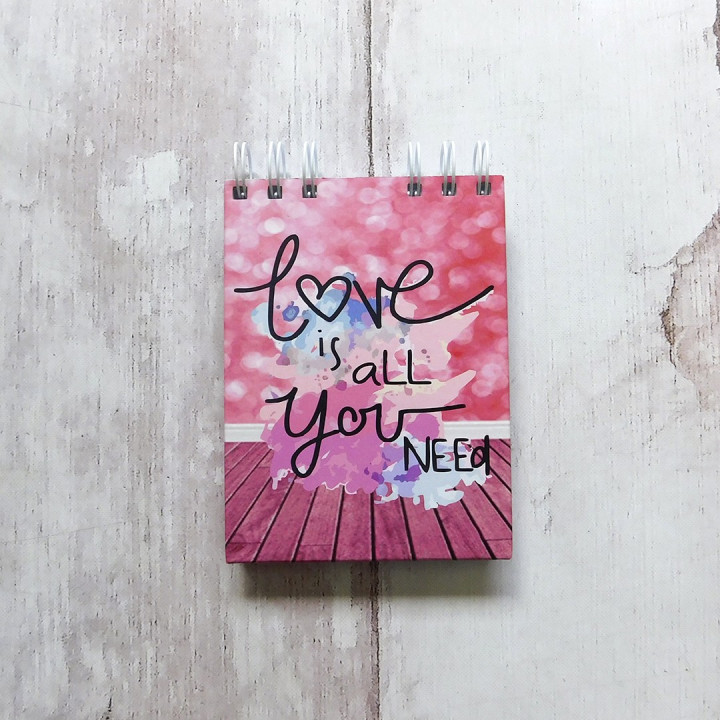 love
is aLL
you
NEEd